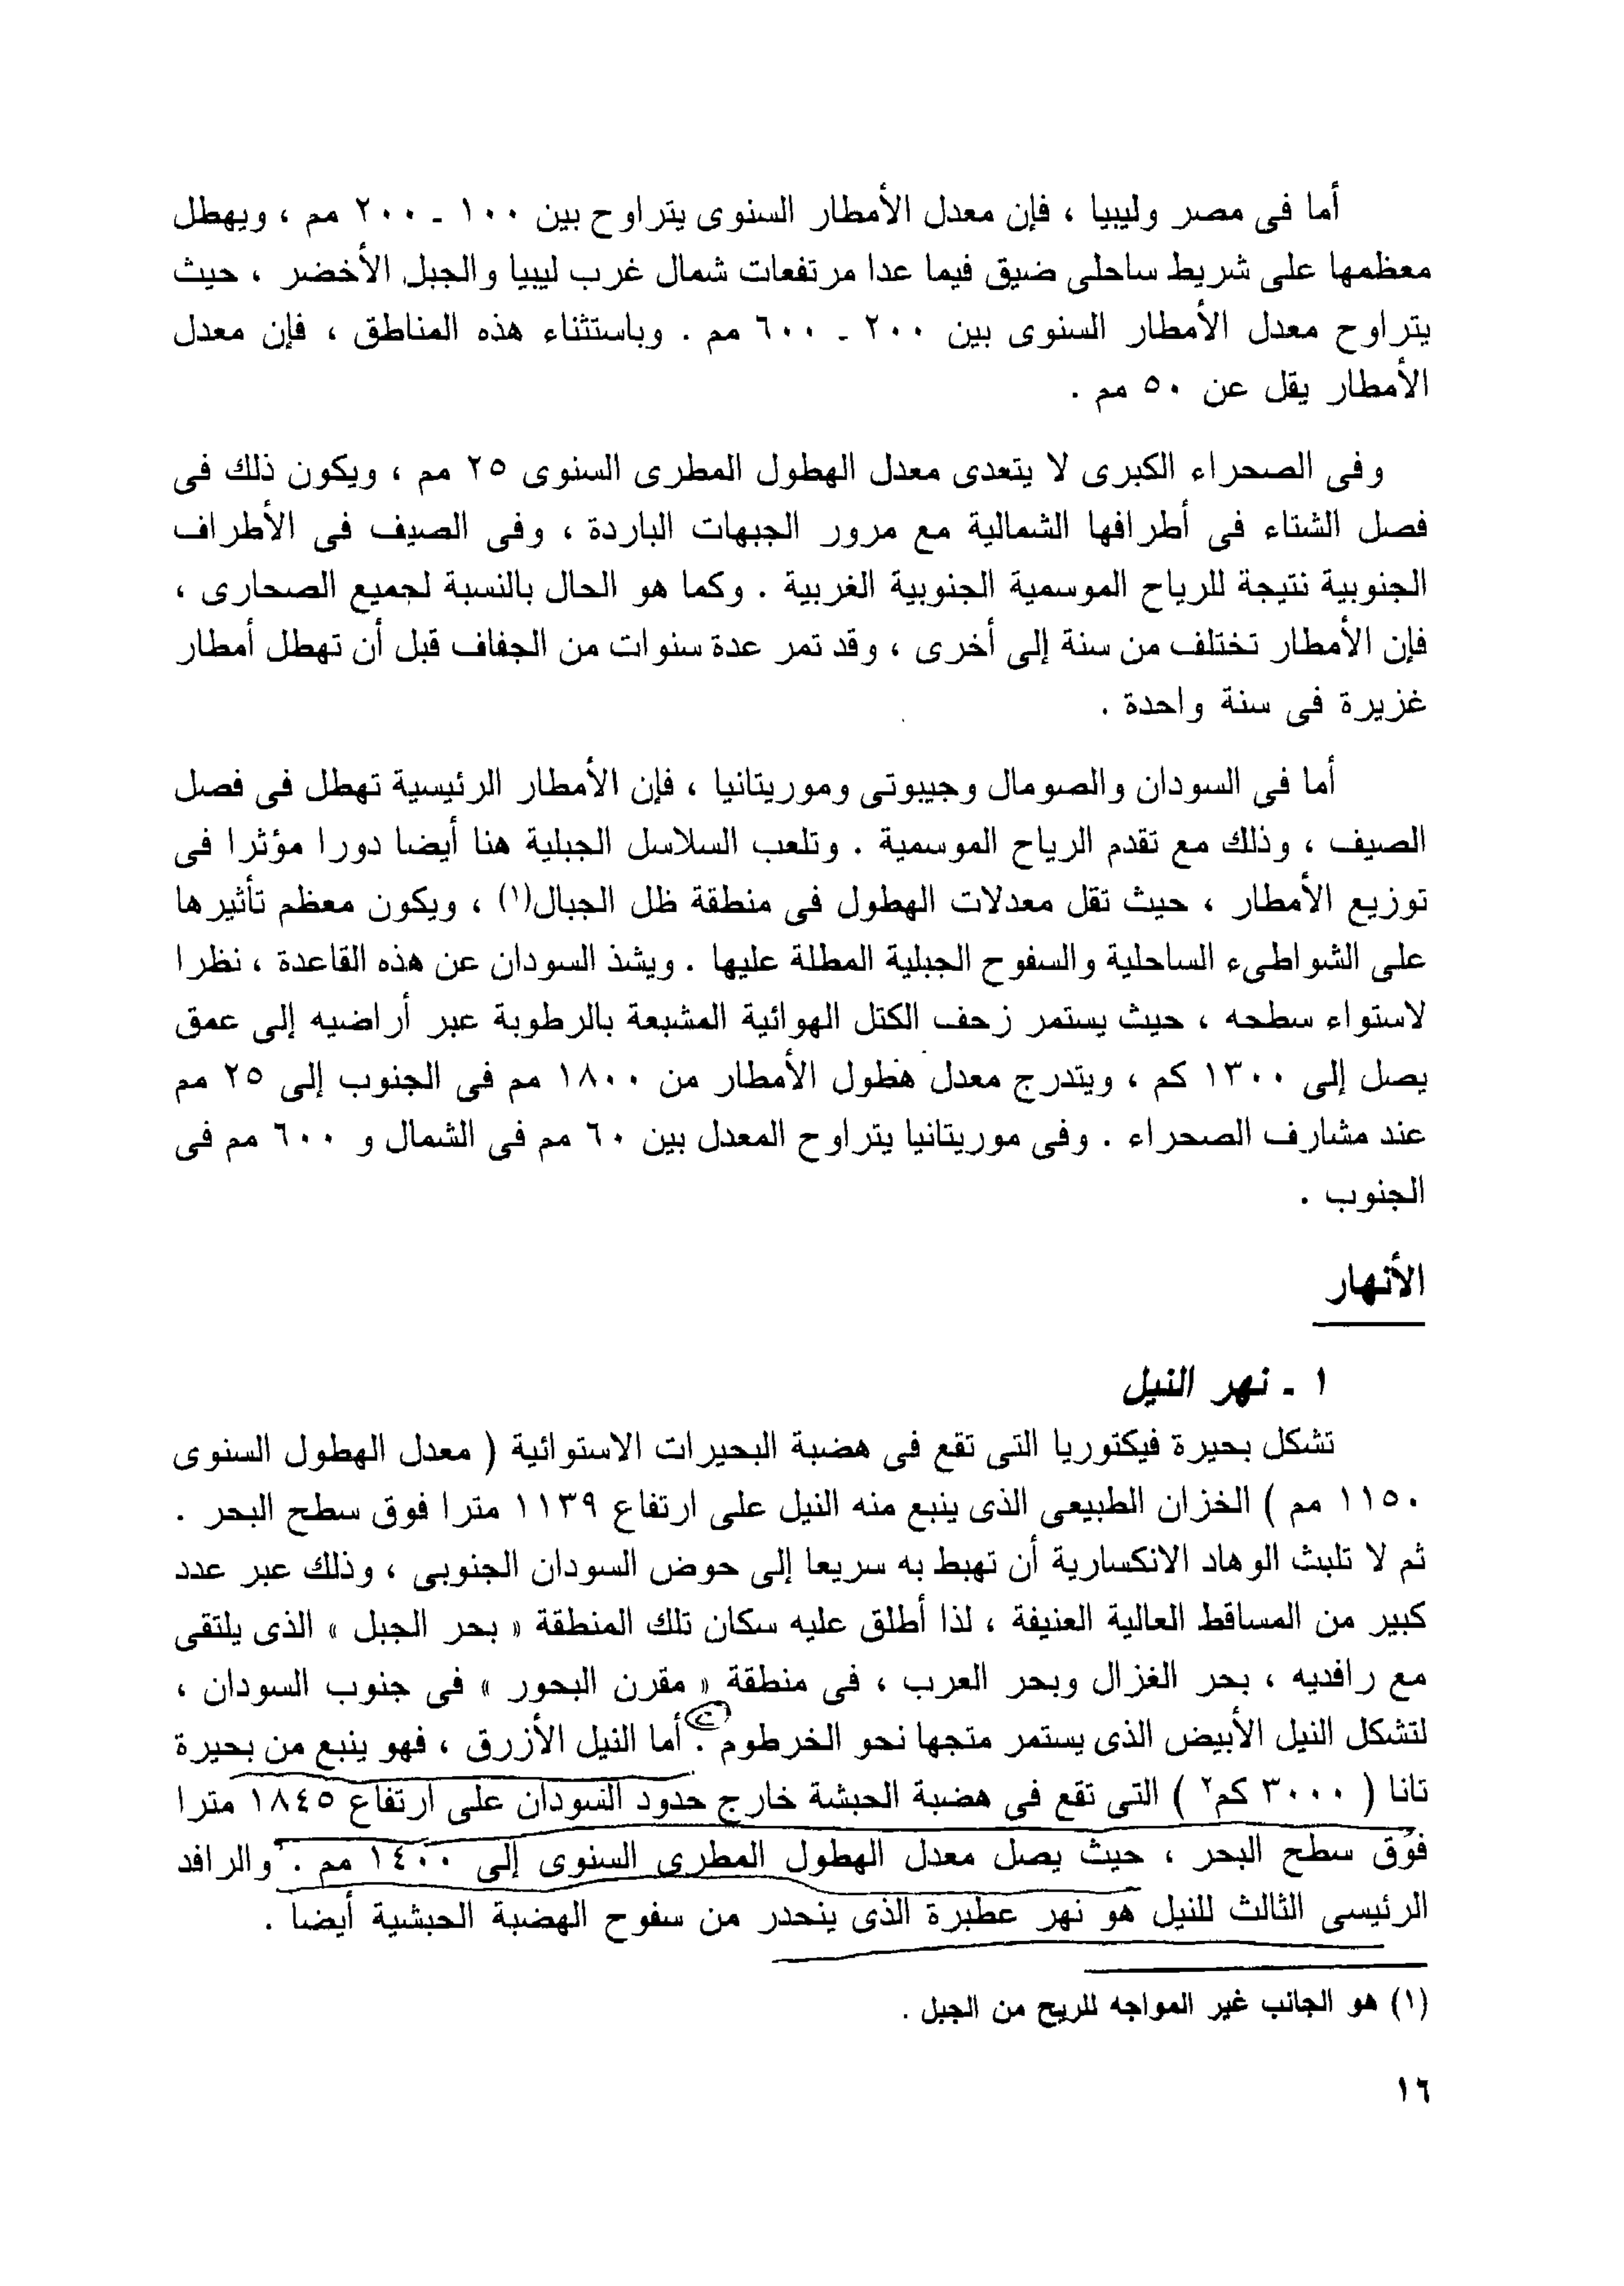 أما فى مصر وليبيا ، فإن معدل الأمطار السنوى يتراوح بين ١٠٠ ـ ٢٠٠ مم ، ويهطل
معظمها على شريط ساحلى ضيق فيما عدا مرتفعات شمال غرب ليبيا والجبل الأخضر ، حيث
يتراوح معدل الأمطار السنوى بين ٢٠٠ ـ ٦٠٠ مم . وباستثناء هذه المناطق ، فإن معدل
الأمطار يقل عن ٥٠ مم .
وفى الصحراء الكبرى لا يتعدى معدل الهطول المطرى السنوى ٢٥ مم ، ويكون ذلك فى
فصل الشتاء فى أطرافها الشمالية مع مرور الجبهات الباردة ، وفى الصيف فى الأطراف
الجنوبية نتيجة للرياح الموسمية الجنوبية الغربية . وكما هو الحال بالنسبة لجميع الصحارى ،
فإن الأمطار تختلف من سنة إلى أخرى ، وقد تمر عدة سنوات من الجفاف قبل أن تهطل أمطار
غزيرة فى سنة واحدة .
أما فى السودان والصومال وجيبوتى وموريتانيا ، فإن الأمطار الرئيسية تهطل فى فصل
الصيف ، وذلك مع تقدم الرياح الموسمية . وتلعب السلاسل الجبلية هنا أيضا دورا مؤثرا فى
توزيع الأمطار ، حيث تقل معدلات الهطول فى منطقة ظل الجبال(١) ، ويكون معظم تأثيرها
على الشواطىء الساحلية والسفوح الجبلية المطلة عليها . ويشذ السودان عن هذه القاعدة ، نظرا
لاستواء سطحه ، حيث يستمر زحف الكتل الهوائية المشبعة بالرطوبة عبر أراضيه إلى عمق
يصل إلى ١٣٠٠ كم ، ويتدرج معدل هطول الأمطار من ١٨٠٠ مم فى الجنوب إلى ٢٥ مم
عند مشارف الصحراء . وفى موريتانيا يتراوح المعدل بين ٦٠ مم فى الشمال و ٦٠٠ مم فى
الجنوب .
الأنهار
١ ـ نهر النيل
تشكل بحيرة فيكتوريا التى تقع فى هضبة البحيرات الاستوائية ( معدل الهطول السنوى
١١٥٠ مم ) الخزان الطبيعى الذى ينبع منه النيل على ارتفاع ١١٣٩ مترا فوق سطح البحر .
ثم لا تلبث الوهاد الانكسارية أن تهبط به سريعا إلى حوض السودان الجنوبى ، وذلك عبر عدد
كبير من المساقط العالية العنيفة ، لذا أطلق عليه سكان تلك المنطقة « بحر الجبل » الذى يلتقى
مع رافديه ، بحر الغزال وبحر العرب ، فى منطقة « مقرن البحور » فى جنوب السودان ،
لتشكل النيل الأبيض الذى يستمر متجها نحو الخرطوم . أما النيل الأزرق ، فهو ينبع من بحيرة
تانا ( ٣٠٠٠ كم٢ ) التى تقع فى هضبة الحبشة خارج حدود السودان على ارتفاع ١٨٤٥ مترا
فوق سطح البحر ، حيث يصل معدل الهطول المطرى السنوى إلى ١٤٠٠ مم . والرافد
الرئيسى الثالث للنيل هو نهر عطبرة الذى ينحدر من سفوح الهضبة الحبشية أيضا .
(١) هو الجانب غير المواجه للريح من الجبل .
١٦